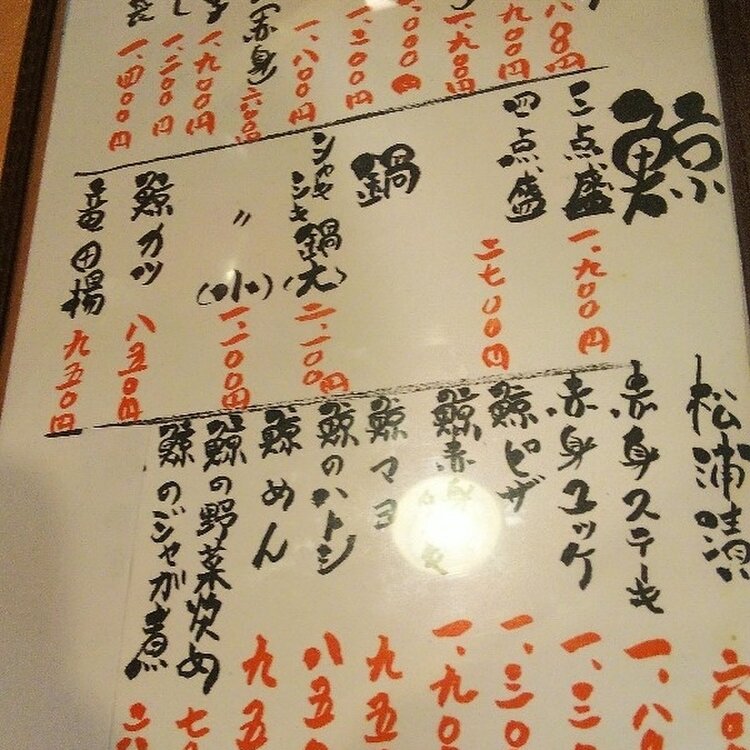 八〇〇円
九〇〇円
一、九〇〇円
〇〇〇円
一、三〇〇円
一、八〇〇円
(赤身)六〇〇
一、九〇〇円
し一、二〇〇円
一、四〇〇円
鯨
三点盛 一、九〇〇円
四点盛 二七〇〇円
鍋
シャキシキ鍋(大) 二、一〇〇円
〃 (小) 一、一〇〇円
鯨カツ 八五〇円
竜田揚 九五〇円
松浦漬 六
赤身ステーキ 一、八
赤身ユッケ 一、三
鯨ピザ 一、三〇
鯨赤身 一、九〇
鯨マヨ 九五
鯨のハトシ 八五
鯨めん 九五
鯨の野菜炒め 七
鯨のジャが煮